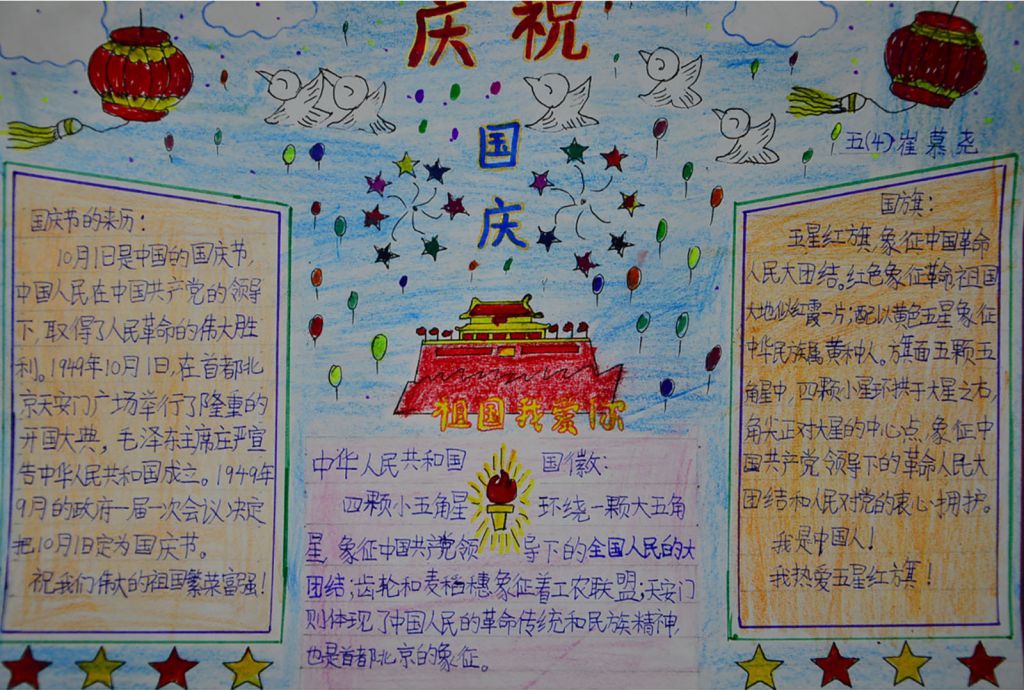 庆祝
国
庆
五(4)崔慕尧
国庆节的来历:
10月1日是中国的国庆节,
中国人民在中国共产党的领导
下,取得了人民革命的伟大胜
利。1949年10月1日,在首都北
京天安门广场举行了隆重的
开国大典,毛泽东主席庄严宣
告中华人民共和国成立。1949年
9月的政府一届一次会议决定
把10月1日定为国庆节。
祝我们伟大的祖国繁荣富强!
祖国我爱你
中华人民共和国 国徽:
四颗小五角星 环绕一颗大五角
星,象征中国共产党领 导下的全国人民的大
团结;齿轮和麦稻穗象征着工农联盟;天安门
则体现了中国人民的革命传统和民族精神,
也是首都北京的象征。
国旗:
五星红旗,象征中国革命
人民大团结。红色象征革命,祖国
大地似红霞一片;配以黄色五星象征
中华民族属黄种人。旗面五颗五
角星中,四颗小星环拱于大星之右,
角尖正对大星的中心点,象征中
国共产党领导下的革命人民大
团结和人民对党的衷心拥护。
我是中国人!
我热爱五星红旗!